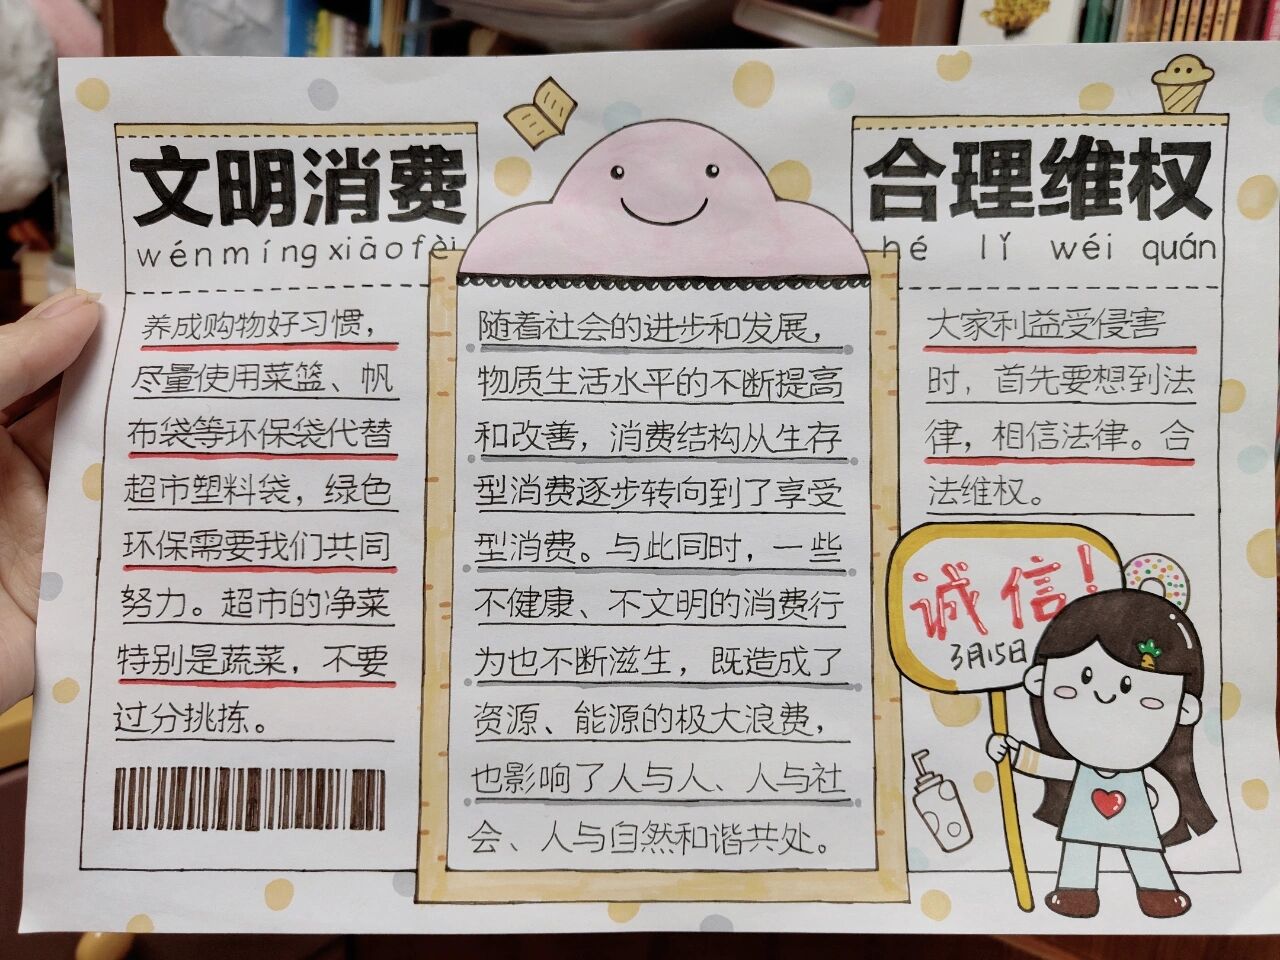 文明消费
wénmíngxiāofèi
养成购物好习惯，
尽量使用菜篮、帆
布袋等环保袋代替
超市塑料袋，绿色
环保需要我们共同
努力。超市的净菜
特别是蔬菜，不要
过分挑拣。
随着社会的进步和发展，
物质生活水平的不断提高
和改善，消费结构从生存
型消费逐步转向到了享受
型消费。与此同时，一些
不健康、不文明的消费行
为也不断滋生，既造成了
资源、能源的极大浪费，
也影响了人与人、人与社
会、人与自然和谐共处。
合理维权
hé lǐ wéi quán
大家利益受侵害
时，首先要想到法
律，相信法律。合
法维权。
诚信！
3月15日